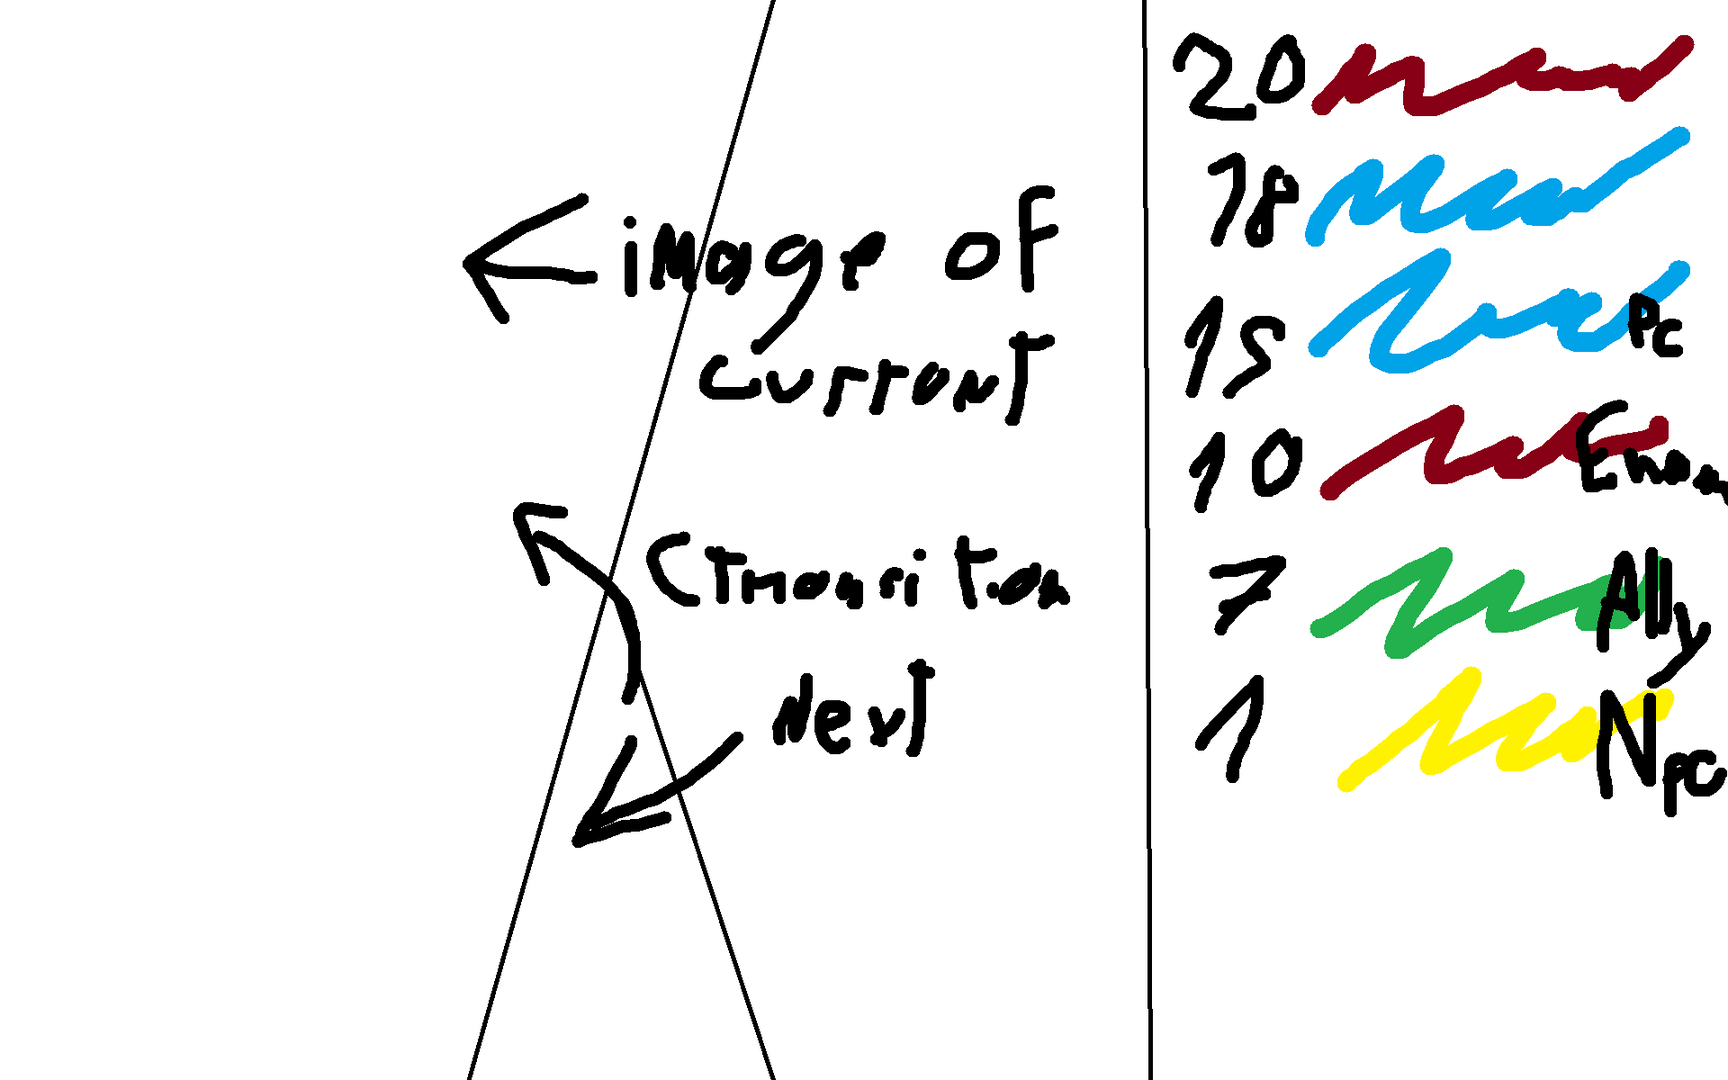 image of
current
(Transition
Next
20
18
15 Pc
10 Enem
7 Ally
1 Npc